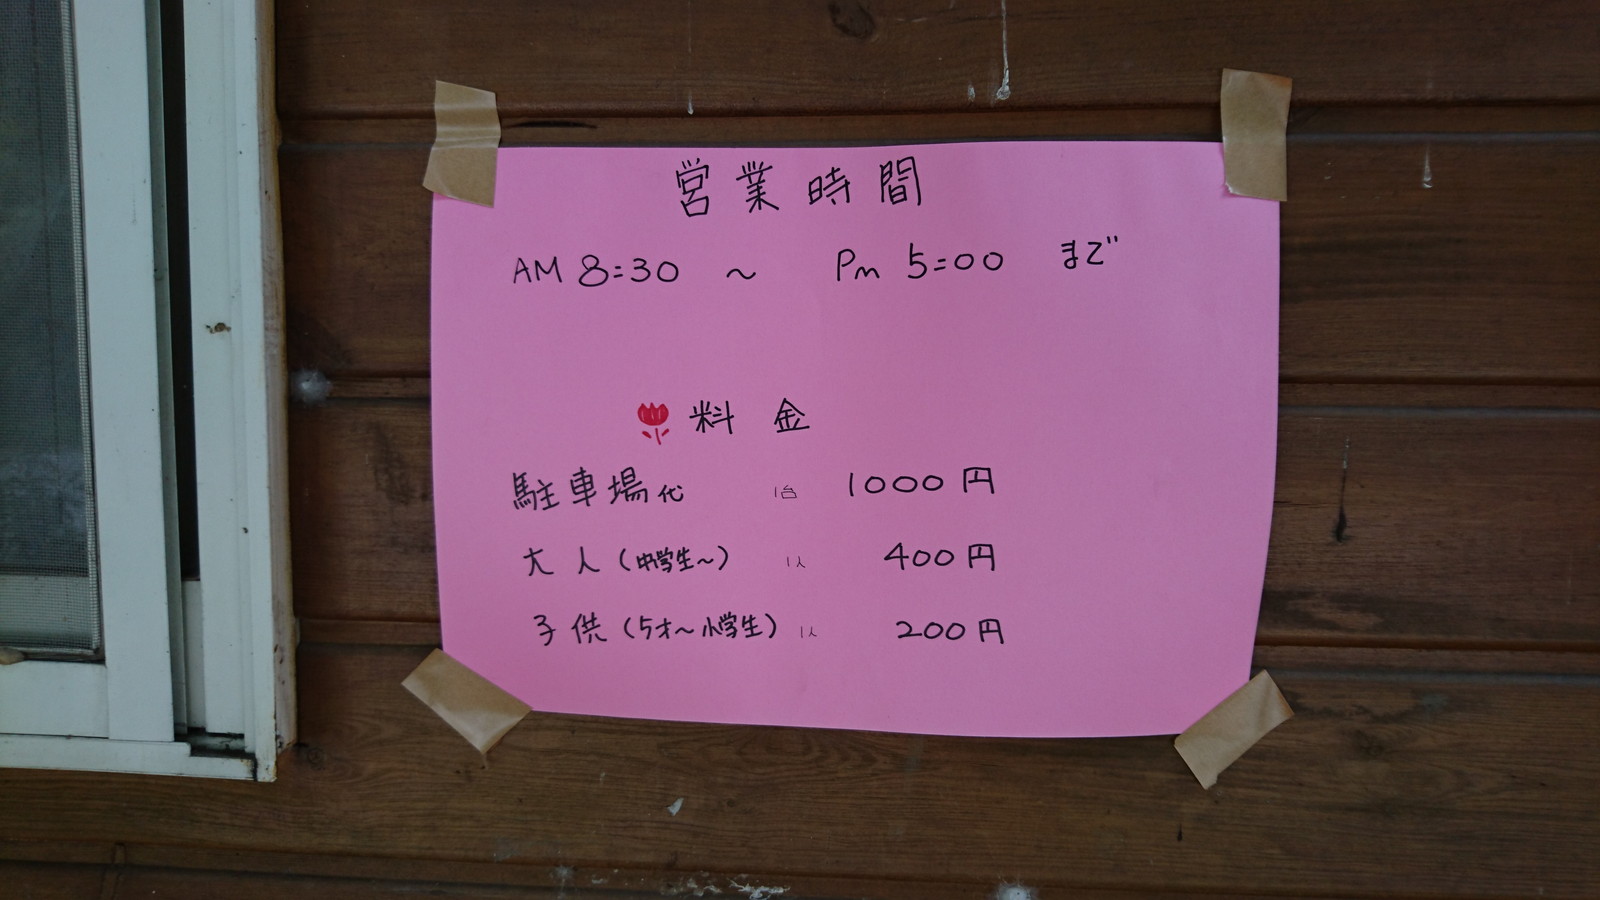 営業時間
AM 8:30 ～ Pm 5:00 まで
料金
駐車場代 1台 1000円
大人(中学生～) 1人 400円
子供(5才～小学生) 1人 200円